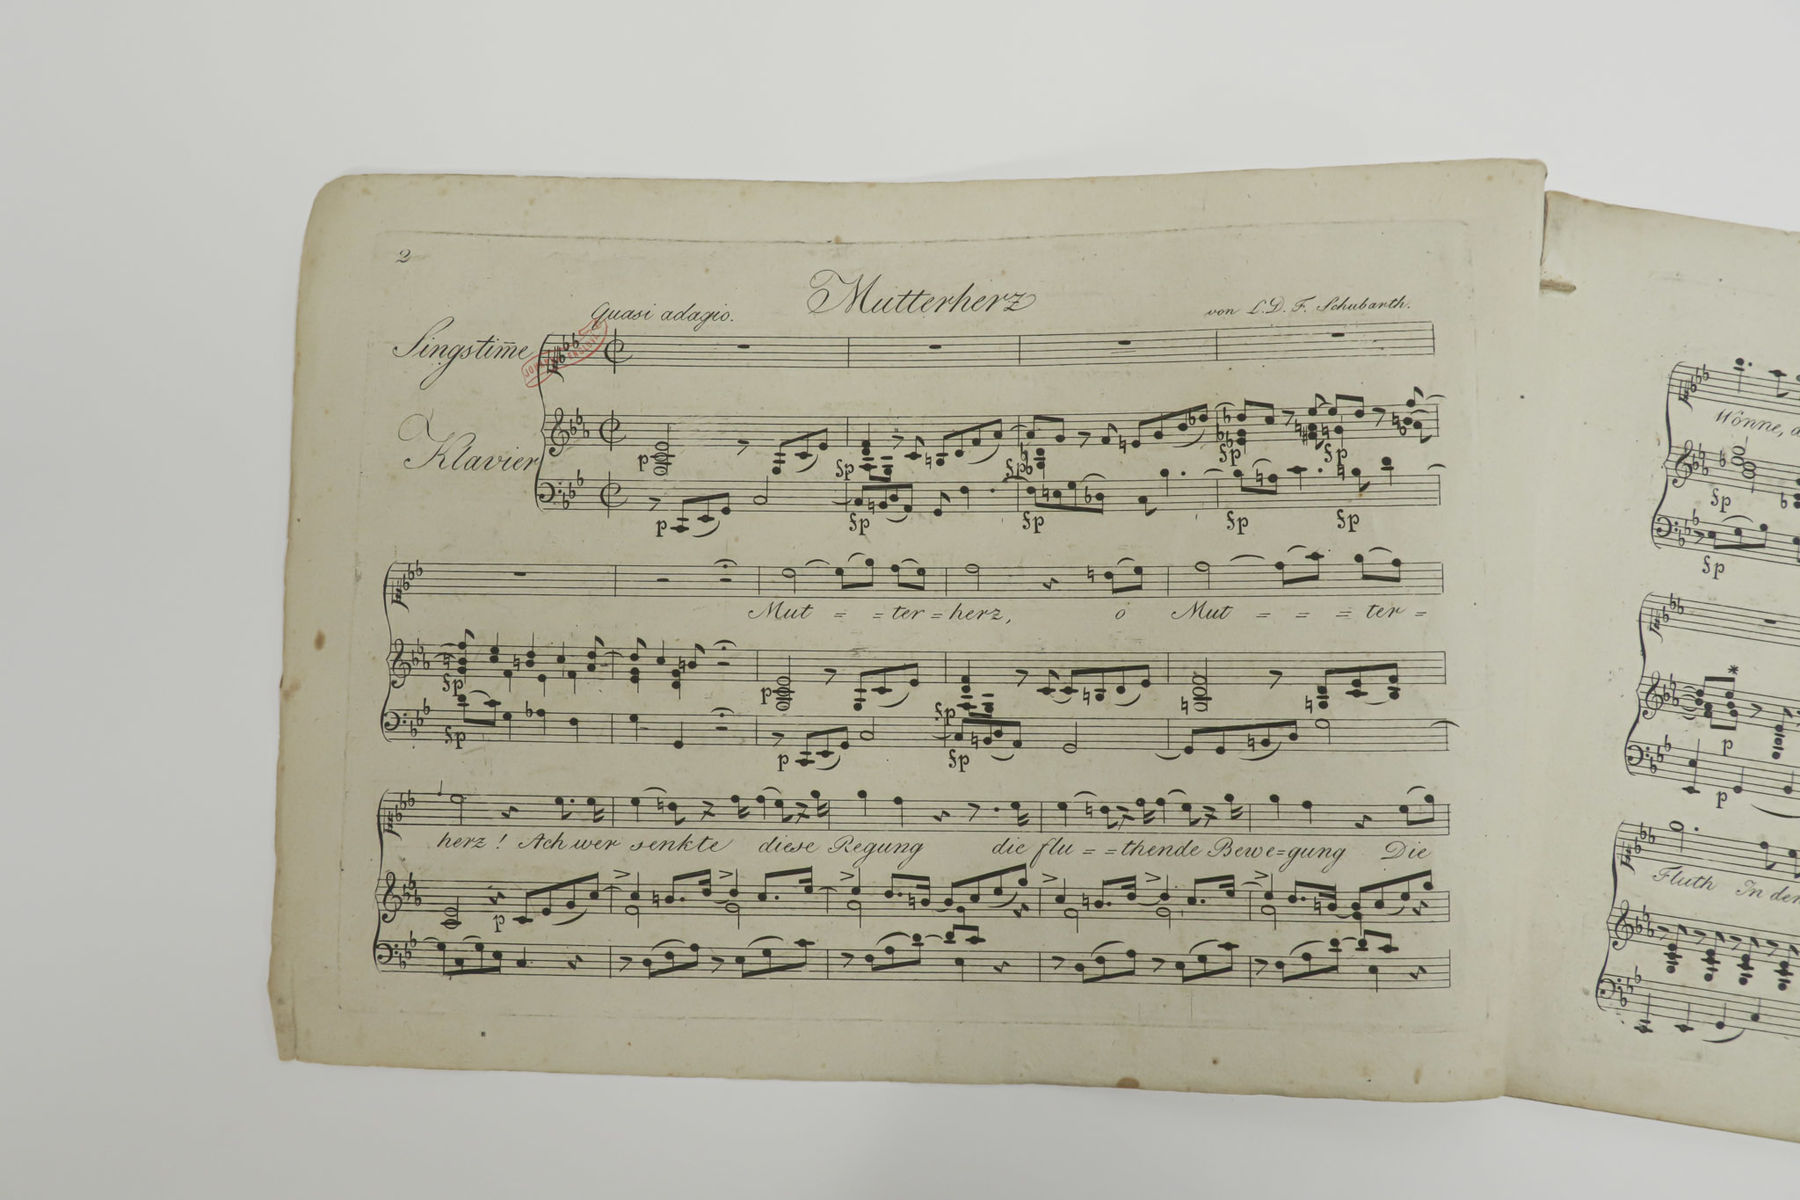 2
Mutterherz
Quasi adagio.
von L. D. F. Schubarth.
Singstim̅e
Klavier
p
p
§p
§p
§p
§p
§p
§p
§p
§p
Mut = = ter = herz, o Mut = = = ter =
§p
§p
p
p
§p
§p
herz! Ach wer senkte diese Regung die flu = = thende Bewe=gung Die
p
Wonne,
§p
§p
p
p
Fluth In den